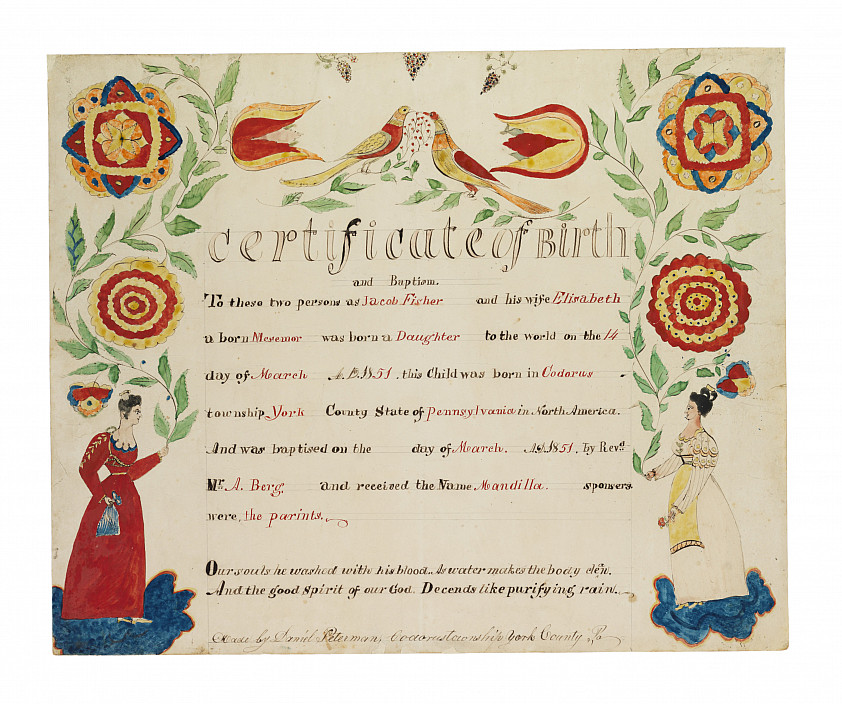 Certificate of Birth
and Baptism.
To these two persons as Jacob Fisher and his wife Elisabeth
a born Mesemor was born a Daughter to the world on the 14
day of March A.D. 1851. this Child was born in Codorus
township York County State of Pennsylvania in North America.
And was baptised on the day of March. AD 1851. by Revd
Mr. A. Berg. and received the Name Mandilla. sponsers
were, the parints.
Our souls he washed with his blood. As water makes the body clen.
And the good spirit of our God. Decends like purifying rain.
Made by Daniel Peterman, Codorus township York County Pa